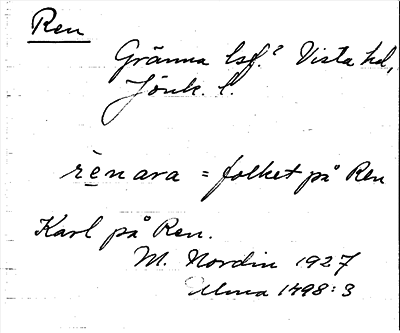 Ren
Gränna lsf.? Vista hd,
Jönk. l.
rēnara = folket på Ren
Karl på Ren.
M. Nordin 1927
Ulma 1498:3